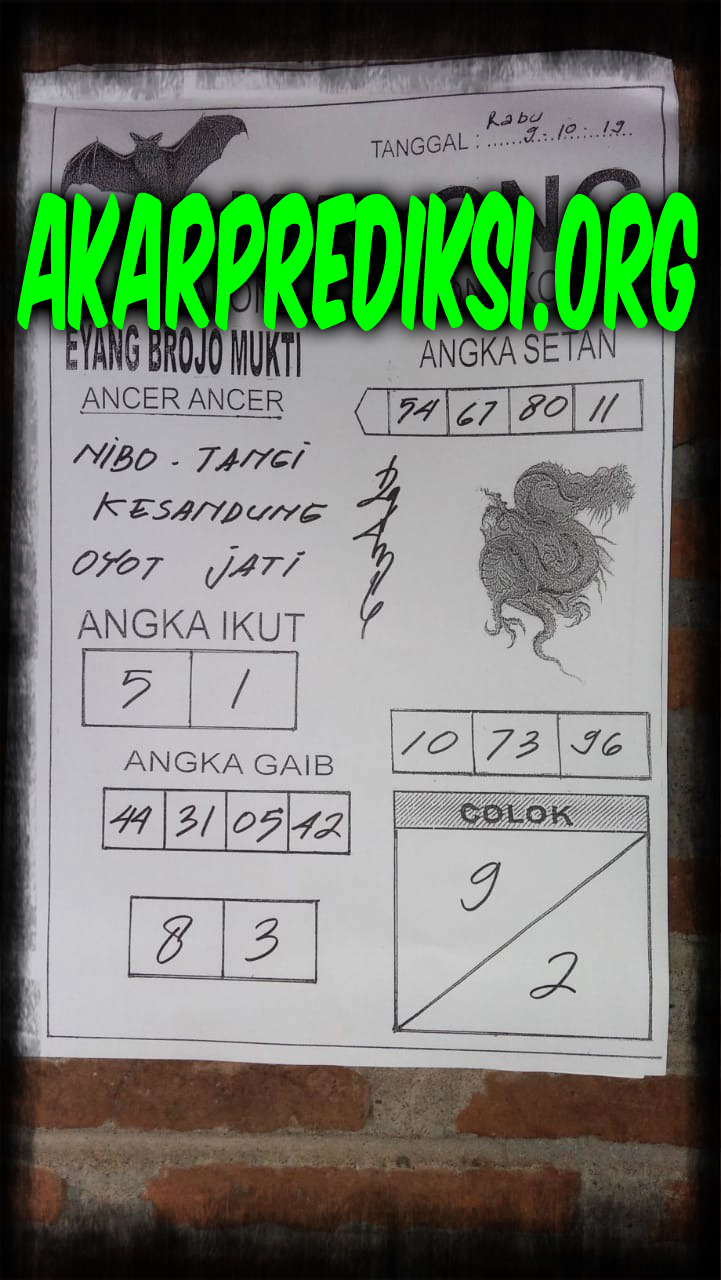 Rabu
TANGGAL : 9 . 10 . 19
AKARPREDIKSI.ORG
EYANG BROJO MUKTI
ANGKA SETAN
ANCER ANCER
54 67 80 11
NIBO . TANGI
KESANDUNG
OYOT JATI
ANGKA IKUT
5 1
10 73 96
ANGKA GAIB
COLOK
44 31 05 42
9
8 3
2